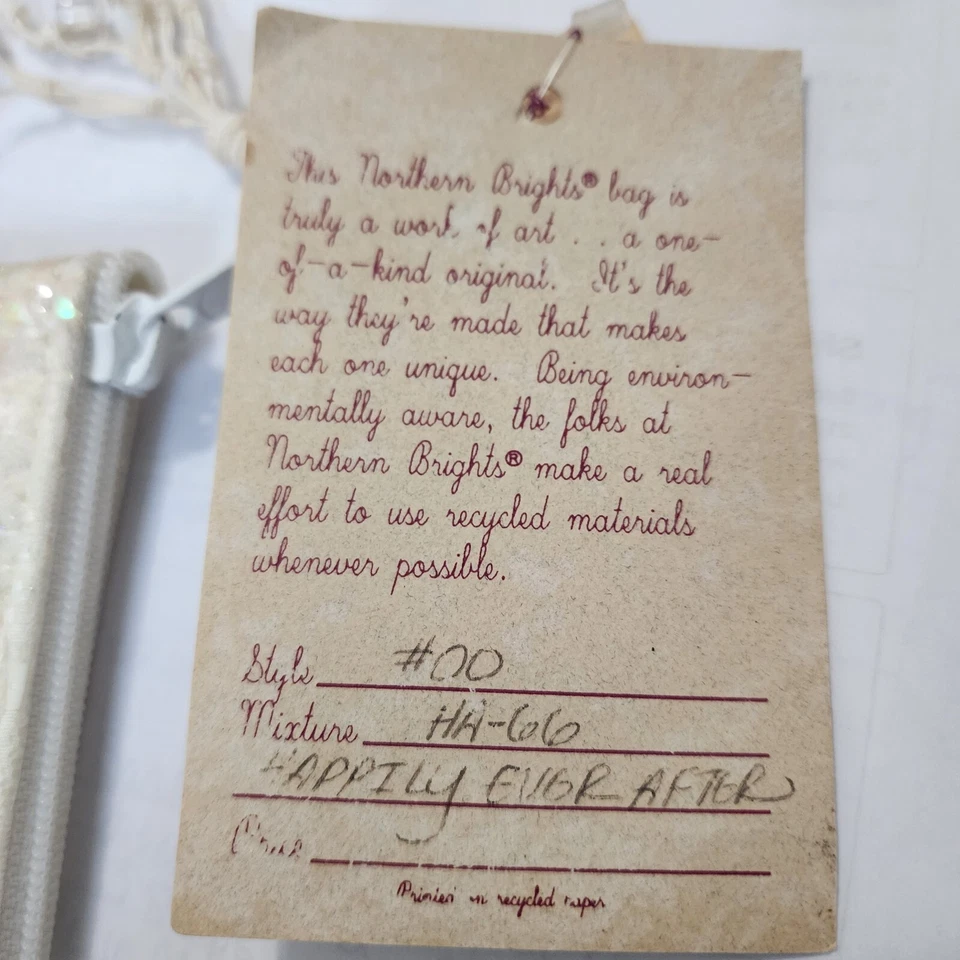 This Northern Brights® bag is
truly a work of art . . a one-
of-a-kind original. It's the
way they're made that makes
each one unique. Being environ-
mentally aware, the folks at
Northern Brights® make a real
effort to use recycled materials
whenever possible.
Style #00
Mixture HA-66
HAPPILY EVER AFTER
Price
Printed on recycled paper